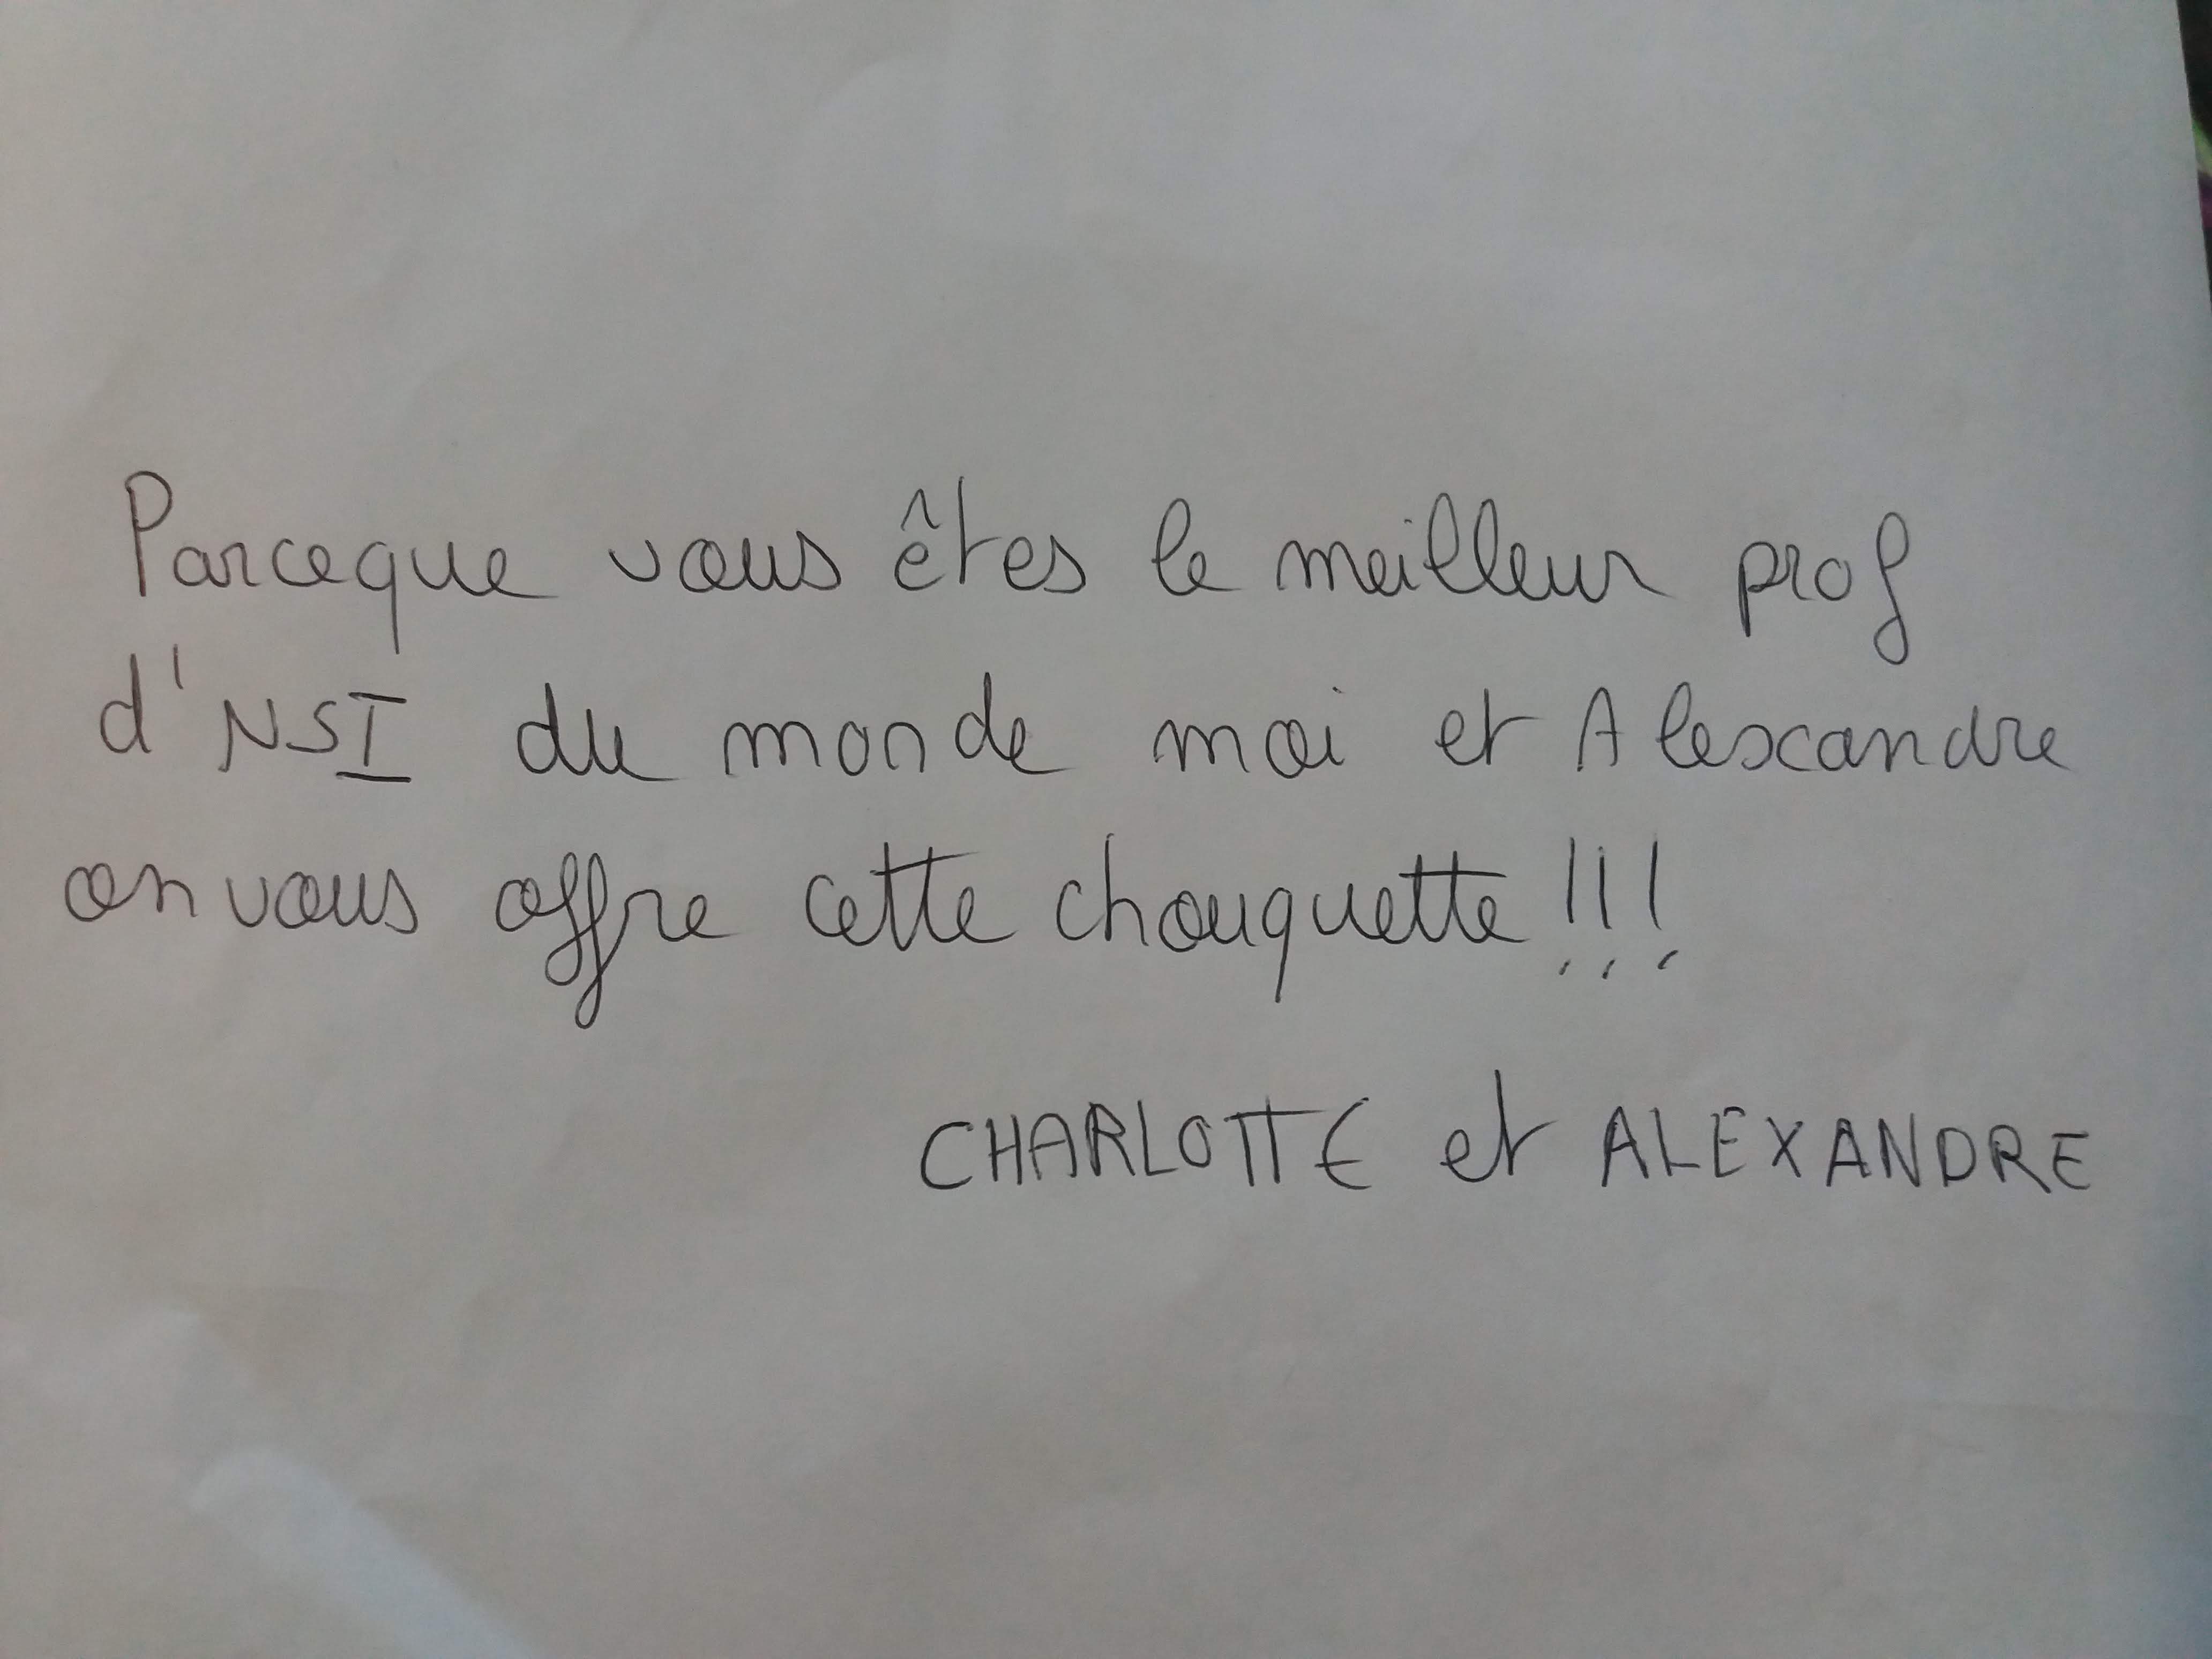 Parceque vous êtes le meilleur prof
d'NSI du monde moi et Alexandre
on vous offre cette chouquette !!!
CHARLOTTE et ALEXANDRE